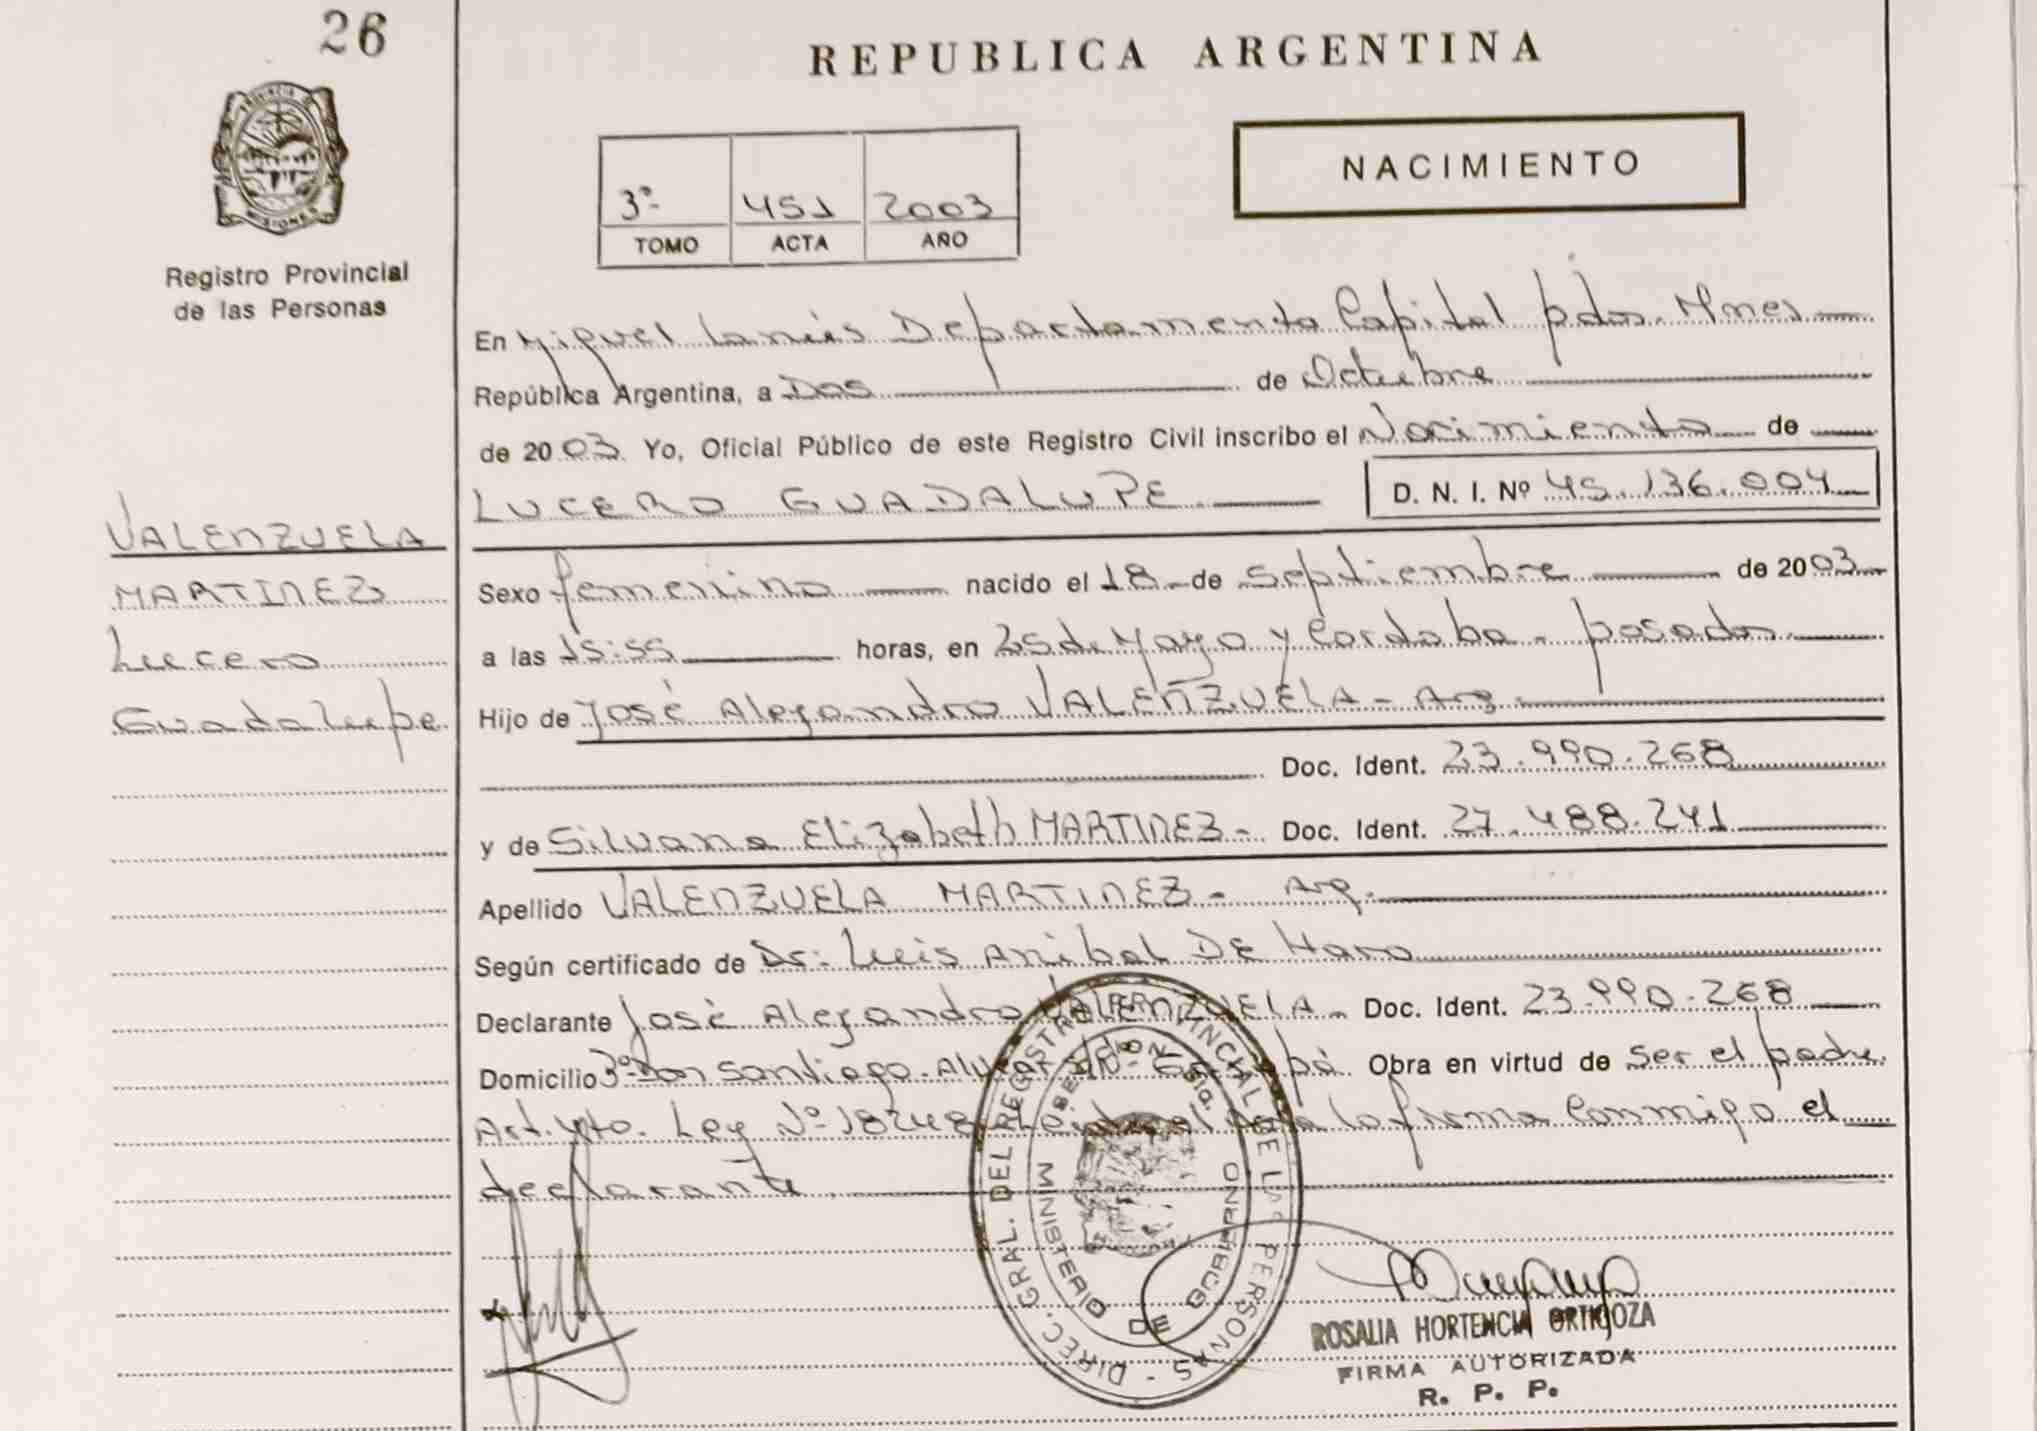 26
REPUBLICA ARGENTINA
PROVINCIA DE
MISIONES
Registro Provincial
de las Personas
3º- 451 2003
TOMO ACTA AÑO
NACIMIENTO
En Miguel Lanús Departamento Capital pdas. Mnes
República Argentina, a Dos de Octubre
de 2003 Yo, Oficial Público de este Registro Civil inscribo el Nacimiento de
LUCERO GUADALUPE D. N. I. Nº 45.136.004
VALENZUELA
MARTINEZ
Lucero
Guadalupe
Sexo femenino nacido el 18 de Septiembre de 2003
a las 15:55 horas, en 25 de Mayo y Cordoba - posadas
Hijo de José Alejandro VALENZUELA - Arg.
Doc. Ident. 23.990.268
y de Silvana Elizabeth MARTINEZ - Doc. Ident. 27.488.241
Apellido VALENZUELA MARTINEZ - Arg.
Según certificado de Dr: Luis Anibal DE Haro
Declarante José Alejandro VALENZUELA - Doc. Ident. 23.990.268
Domicilio 3º Don Santiago Obra en virtud de ser el padre
Art. 4to. Ley Nº 18248 la firma Conmigo el
declarante
DIREC. GRAL. DEL REGISTRO PROVINCIAL DE LAS PERSONAS -
MINISTERIO DE GOBIERNO
ROSALIA HORTENCIA ORTIGOZA
FIRMA AUTORIZADA
R. P. P.